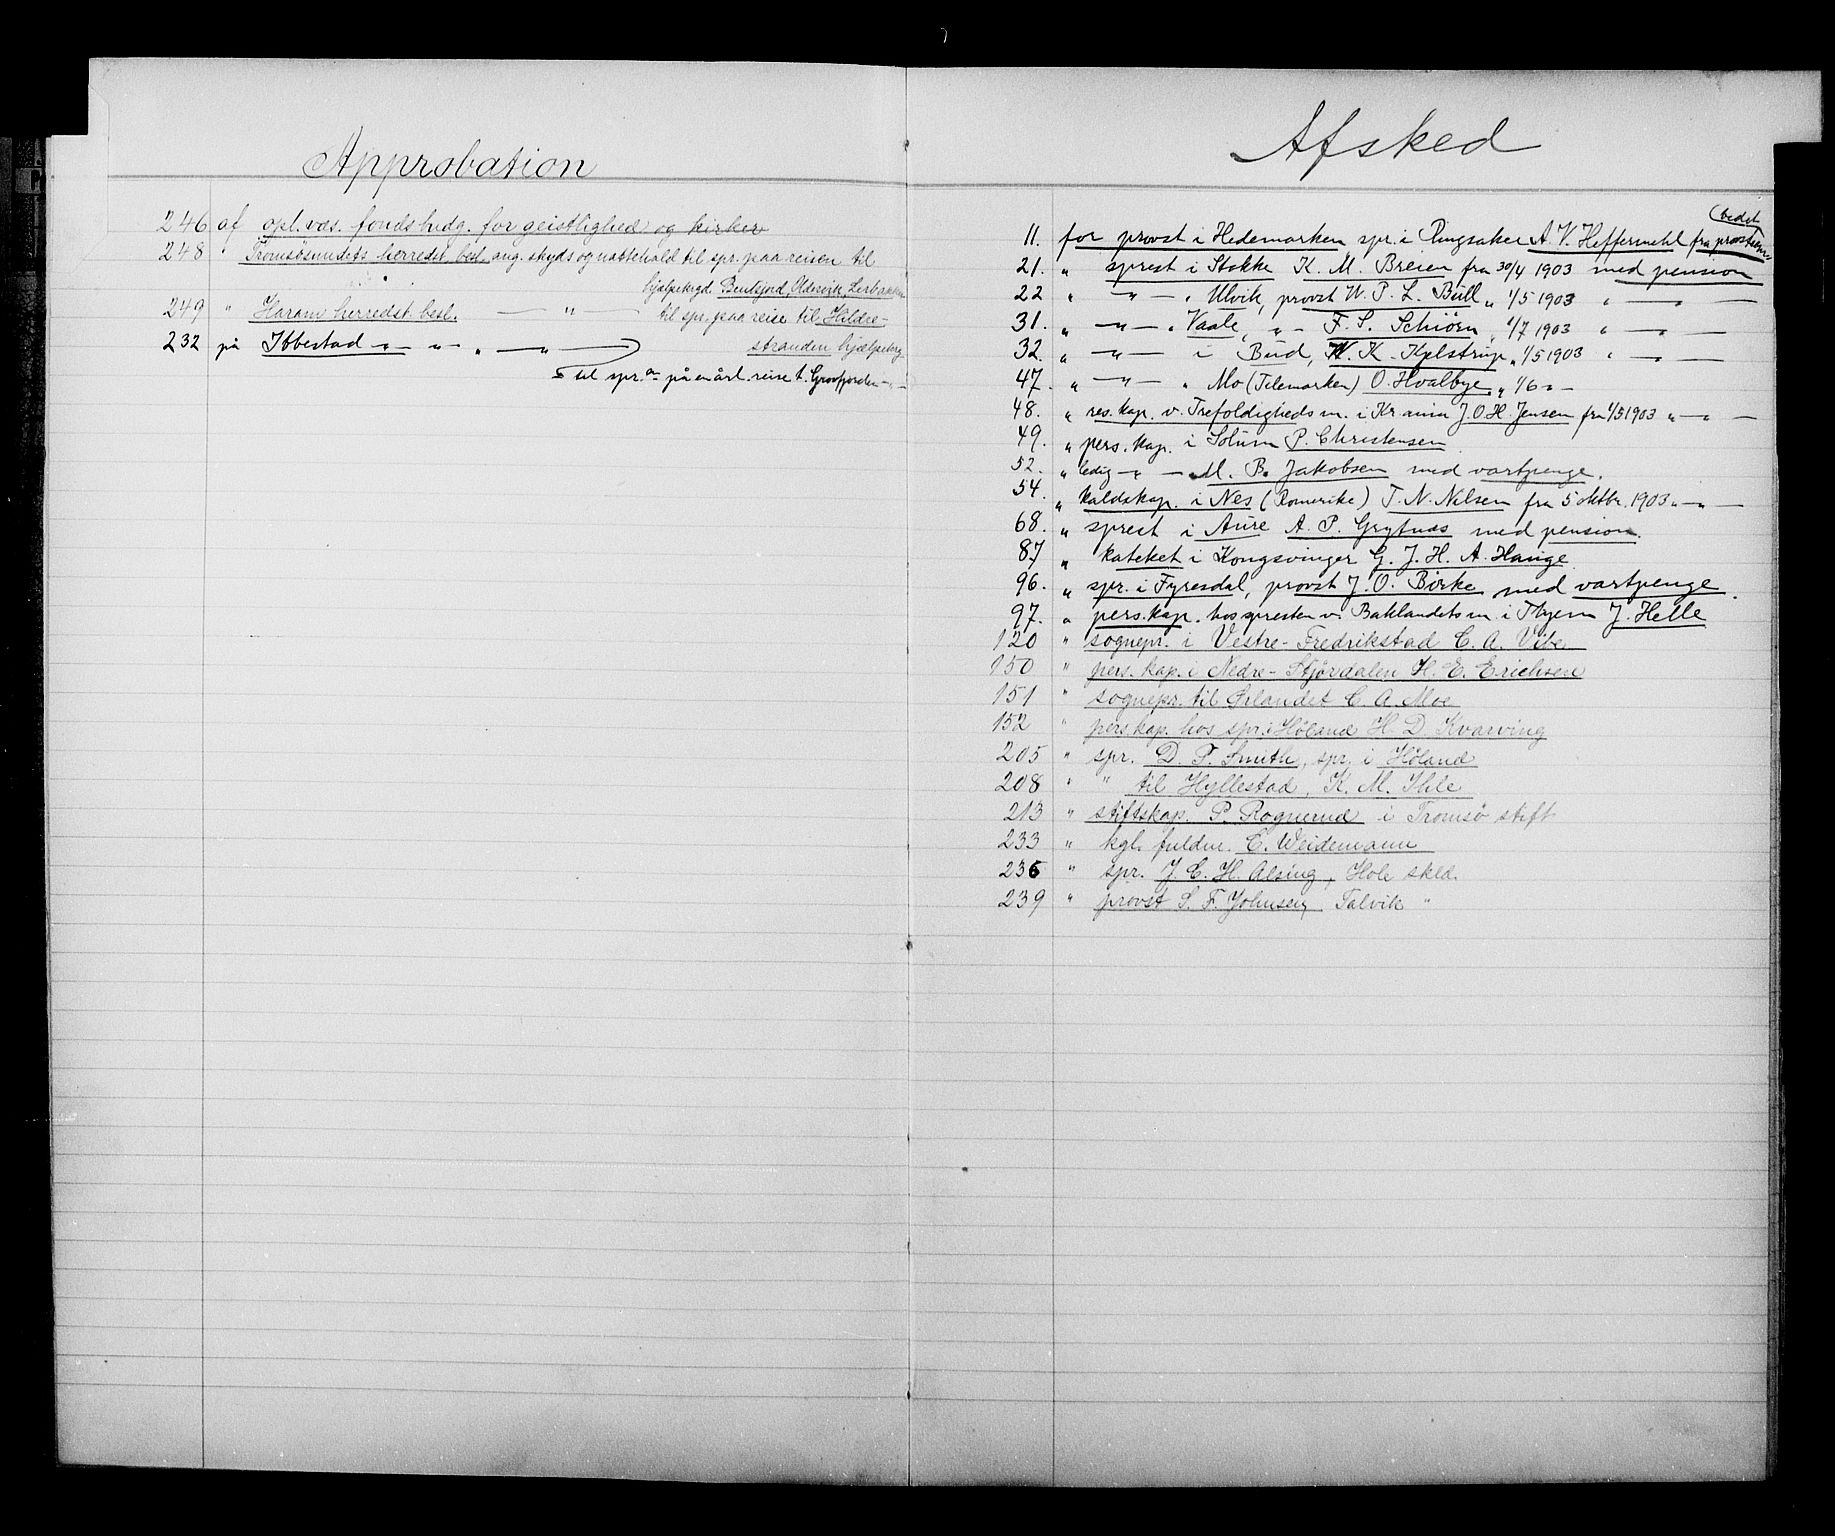 Approbation
246 af opl.væs. fondsbudg. for geistlighed og kirker
248 " Tromsøsundets herredst. besl. ang. skyds og nattehold til spr. paa reisen til
hjælpekrgd. Bentsjord, Oldervik, Lerbakken
249 " Harams herredst. besl. — " — til spr. paa reise til Hildre-
stranden hjælpekrg.
232 på Ibbestad — " — " — " — " —
til spr.s på en årl. reise t. Grovfjorden — " —
Afsked
(bedet
11. for provst i Hedemarken spr. i Ringsaker A. V. Heffermehl fra provstiem
21. " sprest i Stokke K. M. Breien fra 30/4 1903 med pension
22 " — " — " Ulvik, provst W. P. L. Bull " 1/5 1903 " — " —
31. " — " — " Vaale, " — F. S. Schiörn " 1/7 1903 " — " —
32. " — " — i Bud, K. K. Kjelstrup " 1/5 1903 " — " —
47. " — " — " Mo (Telemarken) O. Hvalbye " 1/6 " —
48. " res. kap. v. Trefoldigheds m. i Kr.ania J. O. H. Jensen fra 1/5 1903 " — " —
49. " pers. kap. i Solum P. Christensen
52. " ledig — " — M. B. Jakobsen med vartpenge.
54. " kaldskap. i Nes (Romerike) T. N. Nilsen fra 5 oktbr. 1903 " — " —
68. " sprest i Aure A. P. Grytnæs med pension.
87. " kateket i Kongsvinger G. J. H. A. Hauge
96. " spr. i Fyresdal, provst J. O. Birke med vartpenge.
97. " pers.kap. hos spresten v. Baklandets m. i Thjem J. Helle
120 " sognepr. i Vestre-Fredrikstad C. A. Vibe
150 " pers. kap. i Nedre-Stjørdalen H. E. Erichsen
151 " sognepr. til Ørlandet C. A. Moe
152 " pers.kap. hos spr. i Høland H. D. Kvarving
205 " spr. D. F. Smith, spr. i Høland
208 " " til Hyllestad, K. M. Ihle
213 " stiftskap. P. Rognerud i Tromsö stift
233 " kgl. fuldm. E. Weidemann
236 " spr. J. C. H. Alsing, Hole skld.
239 " provst S. F. Johnsen, Talvik "